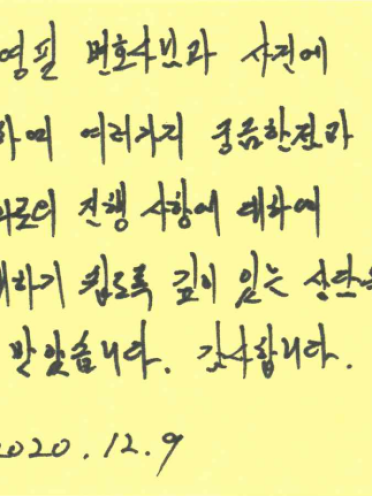 영필 변호사님과 사건에
하며 여러가지 궁금한점과
로의 진행 사항에 대하여
하기 쉽도록 깊이 있는 상담을
받았습니다. 감사합니다.
2020.12.9